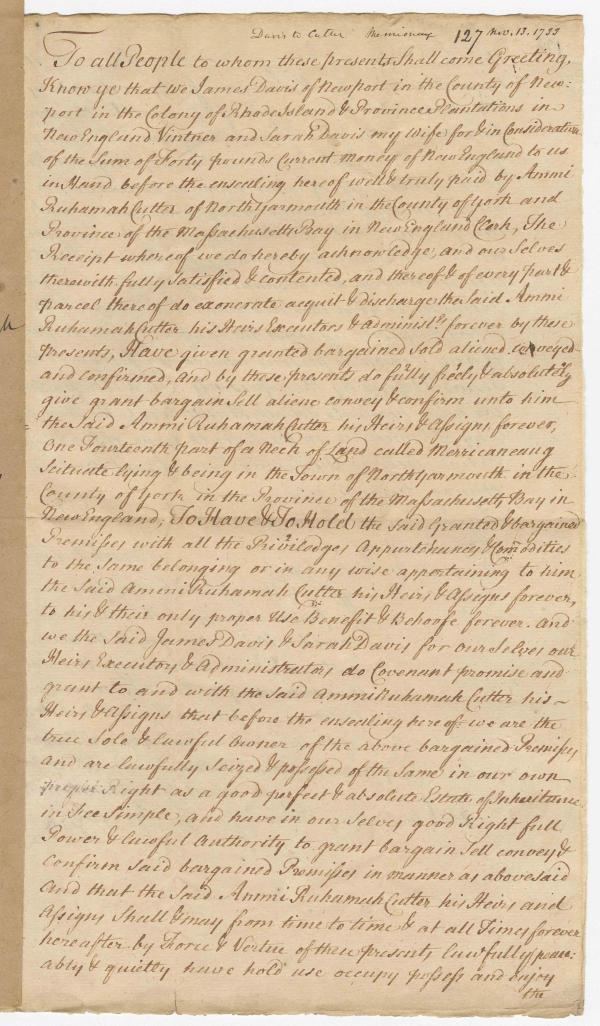 Davis to Cutter Merriconeag 127 Nov. 13. 1733
To all People to whom these presents Shall come Greeting,
Know ye that we James Davis of Newport in the County of New=
port in the Colony of Rhode Island & Province Plantations in
New England Vintner and Sarah Davis my Wife for & in Consideration
of the Sum of Forty pounds Current Money of New England to us
in Hand before the ensealing hereof well & truly paid by Ammi
Ruhamah Cutter of North Yarmouth in the County of York and
Province of the Massachusetts Bay in New England Clerk, The
Receipt whereof we do hereby acknowledge, and our Selves
therewith fully Satisfied & contented, and thereof & of every part &
parcel thereof do exonerate acquit & discharge the Said Ammi
Ruhamah Cutter his Heirs Executors & administrs. forever by these
presents, Have given granted bargained Sold aliened conveyed
and confirmed, and by these presents do fully freely & absolutely
give grant bargain Sell aliene convey & confirm unto him
the Said Ammi Ruhamah Cutter his Heirs & Assigns forever,
One Fourteenth part of a Neck of Land called Merricaneaug
Scituate lying & being in the Town of North Yarmouth in the
County of York in the Province of the Massachusetts Bay in
New England; To Have & To Hold the Said Granted & bargained
Premisses with all the Priviledges Appurtenances & Comodities
to the Same belonging or in any wise appertaining to him
the Said Ammi Ruhamah Cutter his Heirs & Assigns forever,
to his & their only proper Use Benefit & Behoofe forever. And
we the Said James Davis & Sarah Davis for our Selves our
Heirs Executors & Administrators do Covenant promise and
grant to and with the Said Ammi Ruhamah Cutter his
Heirs & Assigns that before the ensealing hereof we are the
true Sole & lawful Owner of the above bargained Premisses
and are lawfully Seized & possessed of the Same in our own
proper Right as a good perfect & absolute Estate of Inheritance
in Fee Simple, and have in our Selves good Right full
Power & lawful Authority to grant bargain Sell convey &
Confirm Said bargained Premisses in manner as abovesaid
And that the Said Ammi Ruhamah Cutter his Heirs and
Assigns Shall & may from time to time & at all Times forever
hereafter by Force & Vertue of these presents lawfully peace=
ably & quietly have hold use occupy possess and enjoy
the